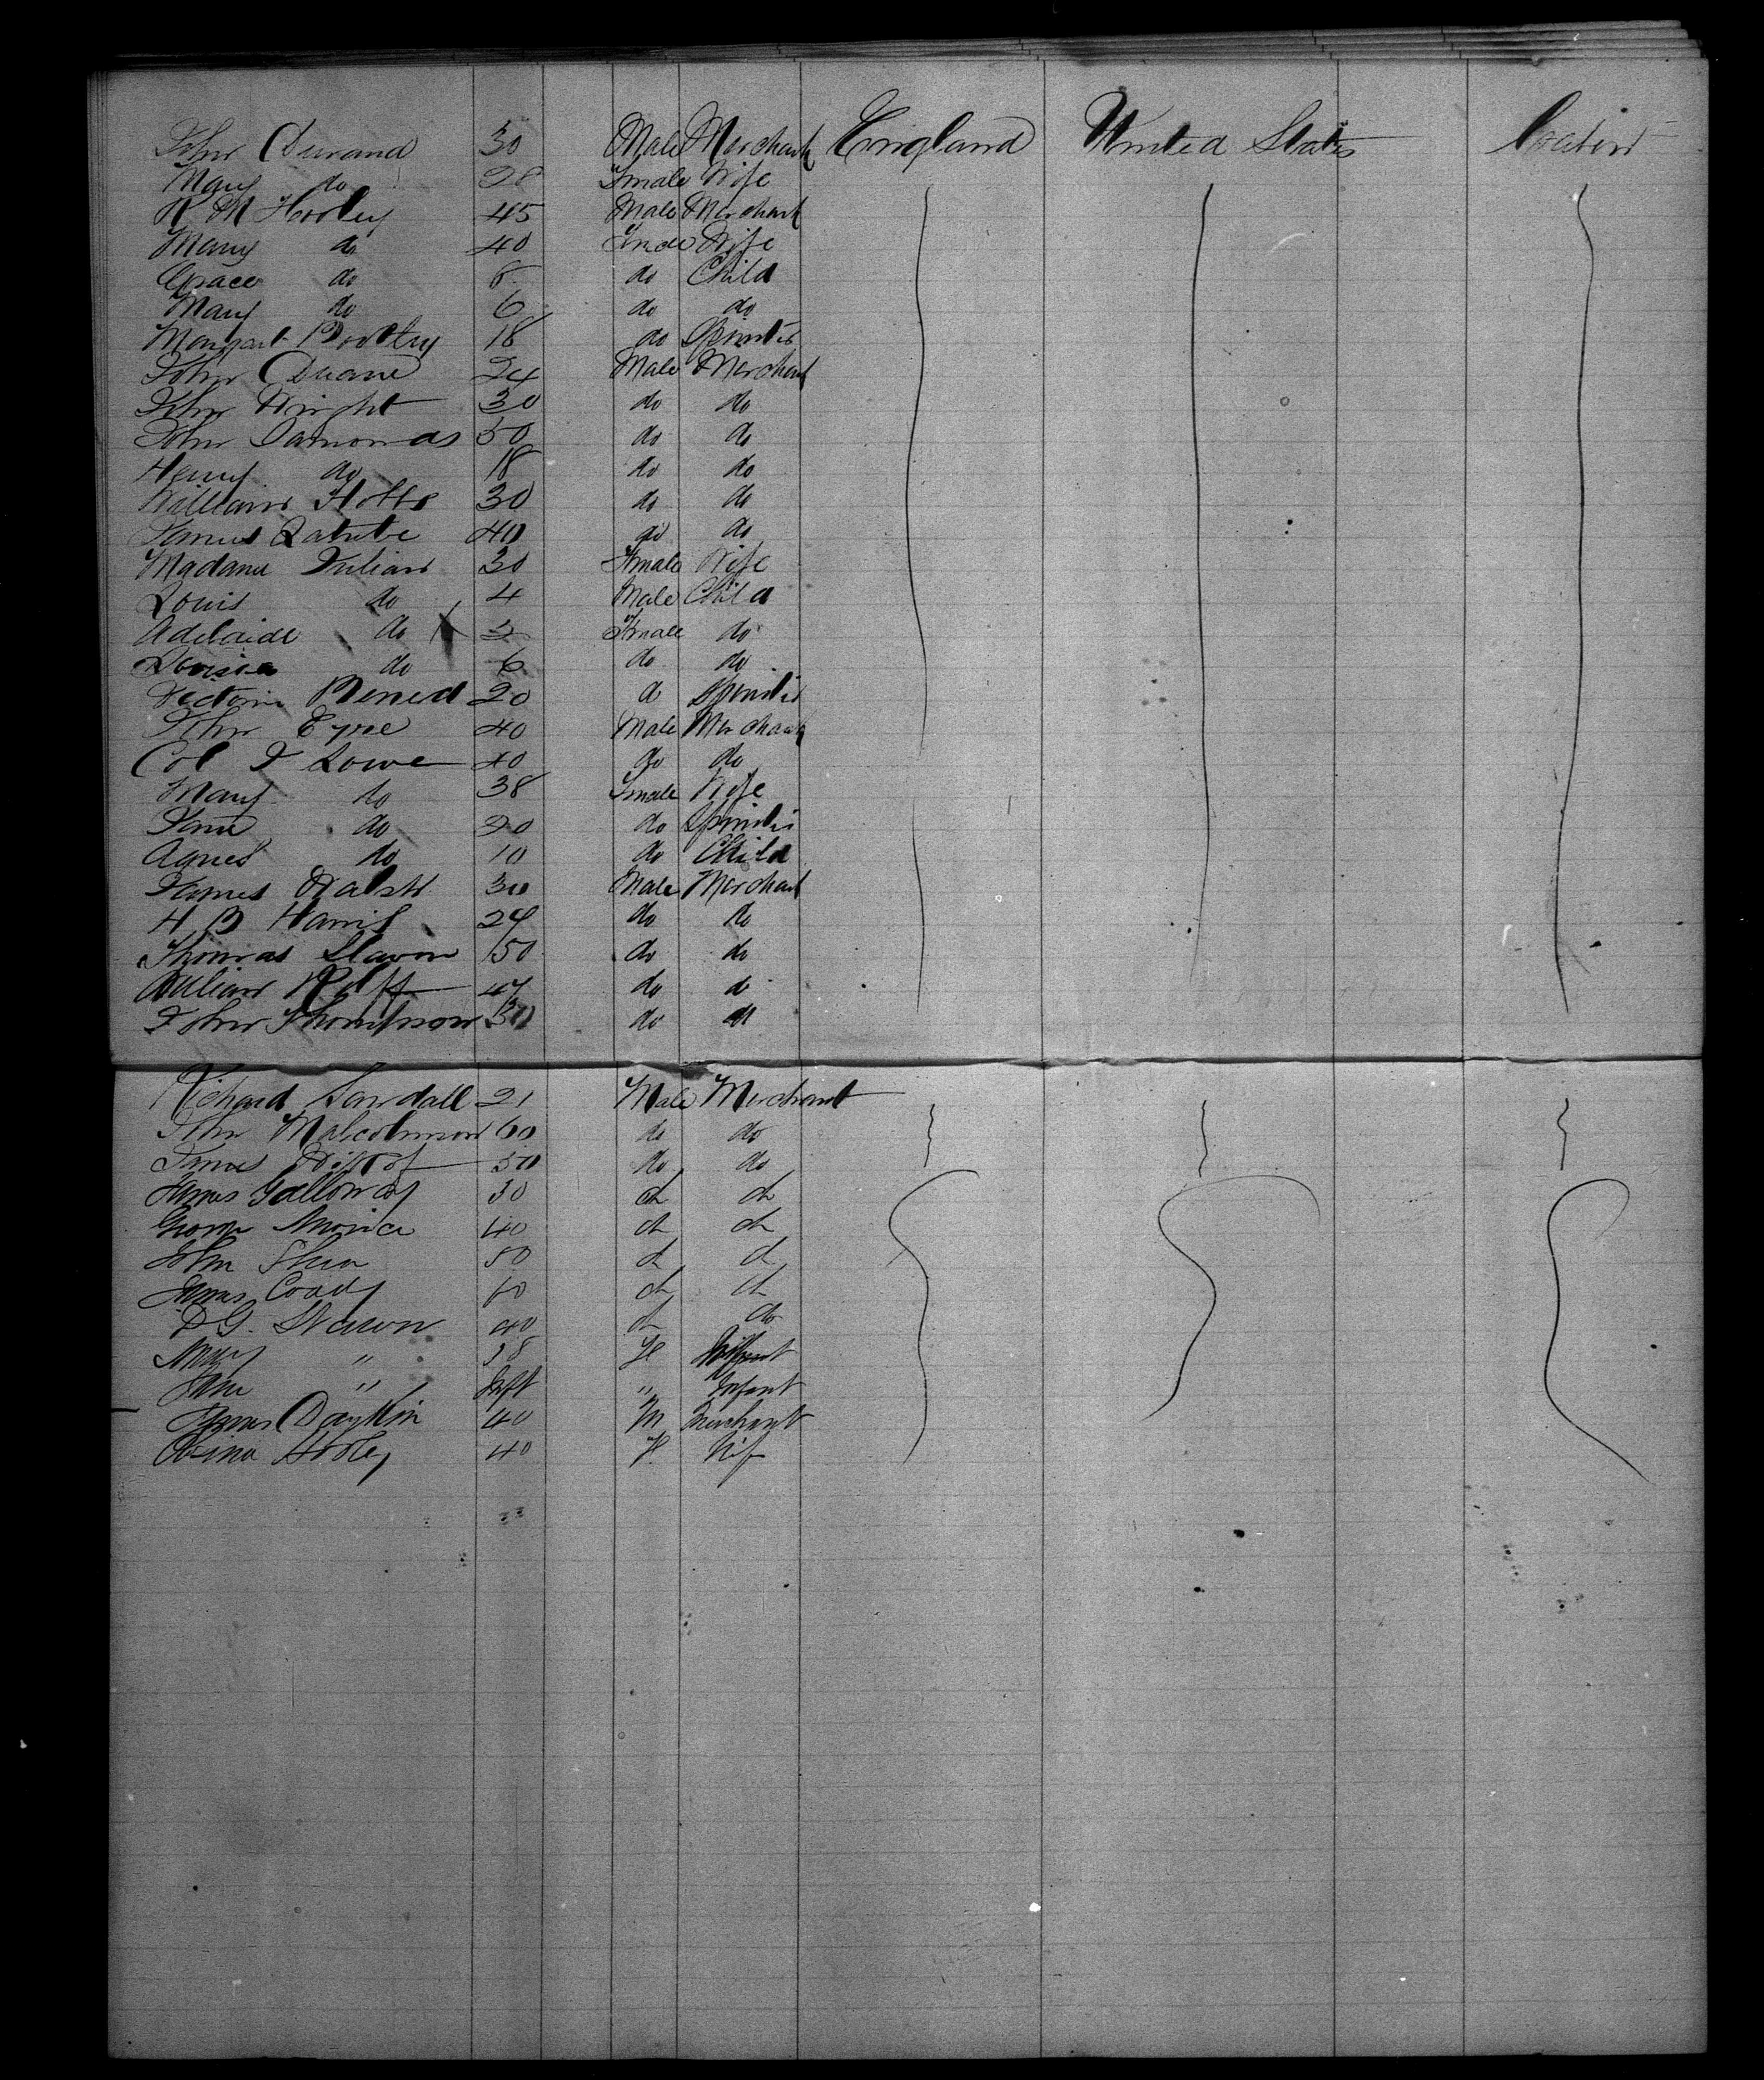 John Durand 30 Male Merchant England United States Cabin
Mary do 28 Female Wife
R M Hooley 45 Male Merchant
Mary do 40 Female Wife
Grace do 8 do Child
Mary do 6 do do
Margaret 18 do Spinster
John Duane 24 Male Merchant
John Wright 30 do do
John 50 do do
Henry do 18 do do
William Hotts 30 do do
James 40 do do
Madame Julian 30 Female Wife
Louis do 4 Male Child
Adelaide do Female do
Louisa do 6 do do
Victoria 20 do Spinster
John Eyre 40 Male Merchant
Col J Lowe 40 do do
Mary do 38 Female Wife
Jane do 20 do Spinster
Agnes do 10 do Child
James Walsh 30 Male Merchant
H B Harris 24 do do
Thomas Slavon 50 do do
William 47 do do
John Thompson do do
Richard Sandall 21 Male Merchant
John Malcolmson 60 do do
James 50 do do
James Galloway 30 do do
George 40 do do
John Shea 50 do do
James Coady 60 do do
40 do do
Mary " 38 F
Jane " Inft " Infant
James Daykin 40 M Merchant
Hooley 40 F Wife